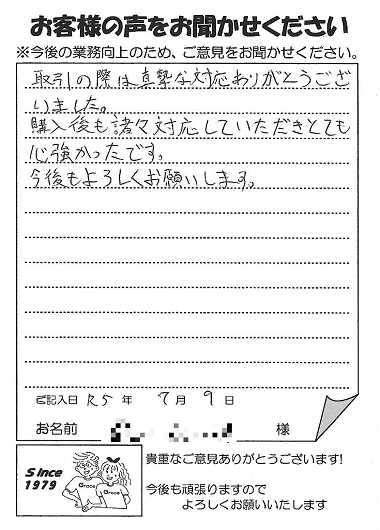 お客様の声をお聞かせください
※今後の業務向上のため、ご意見をお聞かせください。
取引の際は真摯な対応ありがとうござ
いました。
購入後も諸々対応していただきとても
心強かったです。
今後もよろしくお願いします。
ご記入日 R5 年 7月 9 日
お名前 様
Since
1979
Grace
Grace
貴重なご意見ありがとうございます!
今後も頑張りますので
よろしくお願いいたします